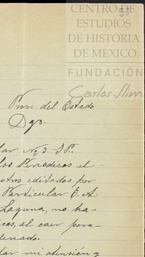 CENTRO DE
ESTUDIOS
DE HISTORIA
DE MEXICO
FUNDACIÓN
Carlos Slim
del Estado
Dgo.
lar No. 3. I.P.
los Periodicos el
otros editados por
Particular E. A.
Laguna, no ha
el caer para
denado.
mi atención y